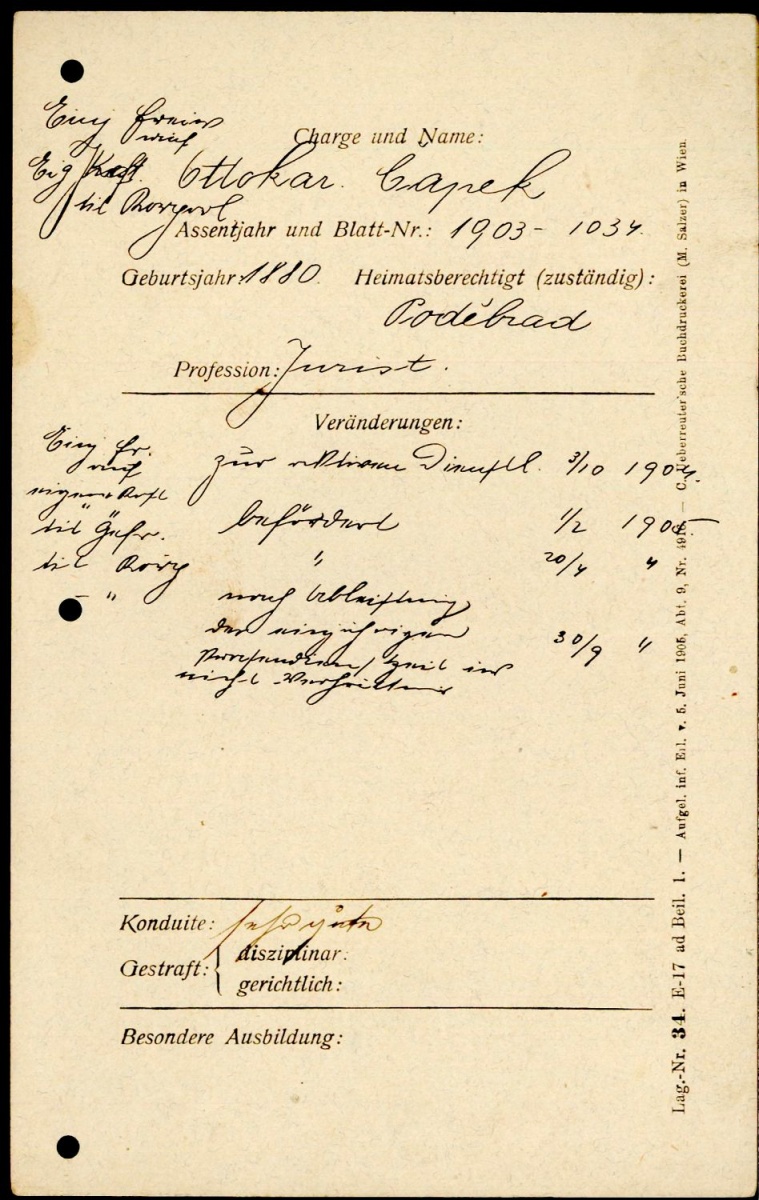 Einj freiw
auf
Charge und Name:
Eig Kost. Ottokar. Čapek
tit Korporl
Assentjahr und Blatt-Nr.: 1903 - 1034.
Geburtsjahr: 1880. Heimatsberechtigt (zuständig):
Poděbrad
Profession: Jurist.
Veränderungen:
Einj fr.
auf zur aktiven Dienstl. 3/10 1904.
eigene Kost
tit Gefr. befördert 1/2 1905
tit Korp " 20/4 "
- " nach Ableistung
der einjährigen 30/9 "
Präsenzdienstzeit ins
nicht
Konduite: sehr gute
Gestraft: disziplinar:
gerichtlich:
Besondere Ausbildung:
Lag.-Nr. 34. E-17 ad Beil. 1. — Aufgel. inf. Erl. v. 5. Juni 1905, Abt. 9, Nr. — C. Ueberreuter'sche Buchdruckerei (M. Salzer) in Wien.